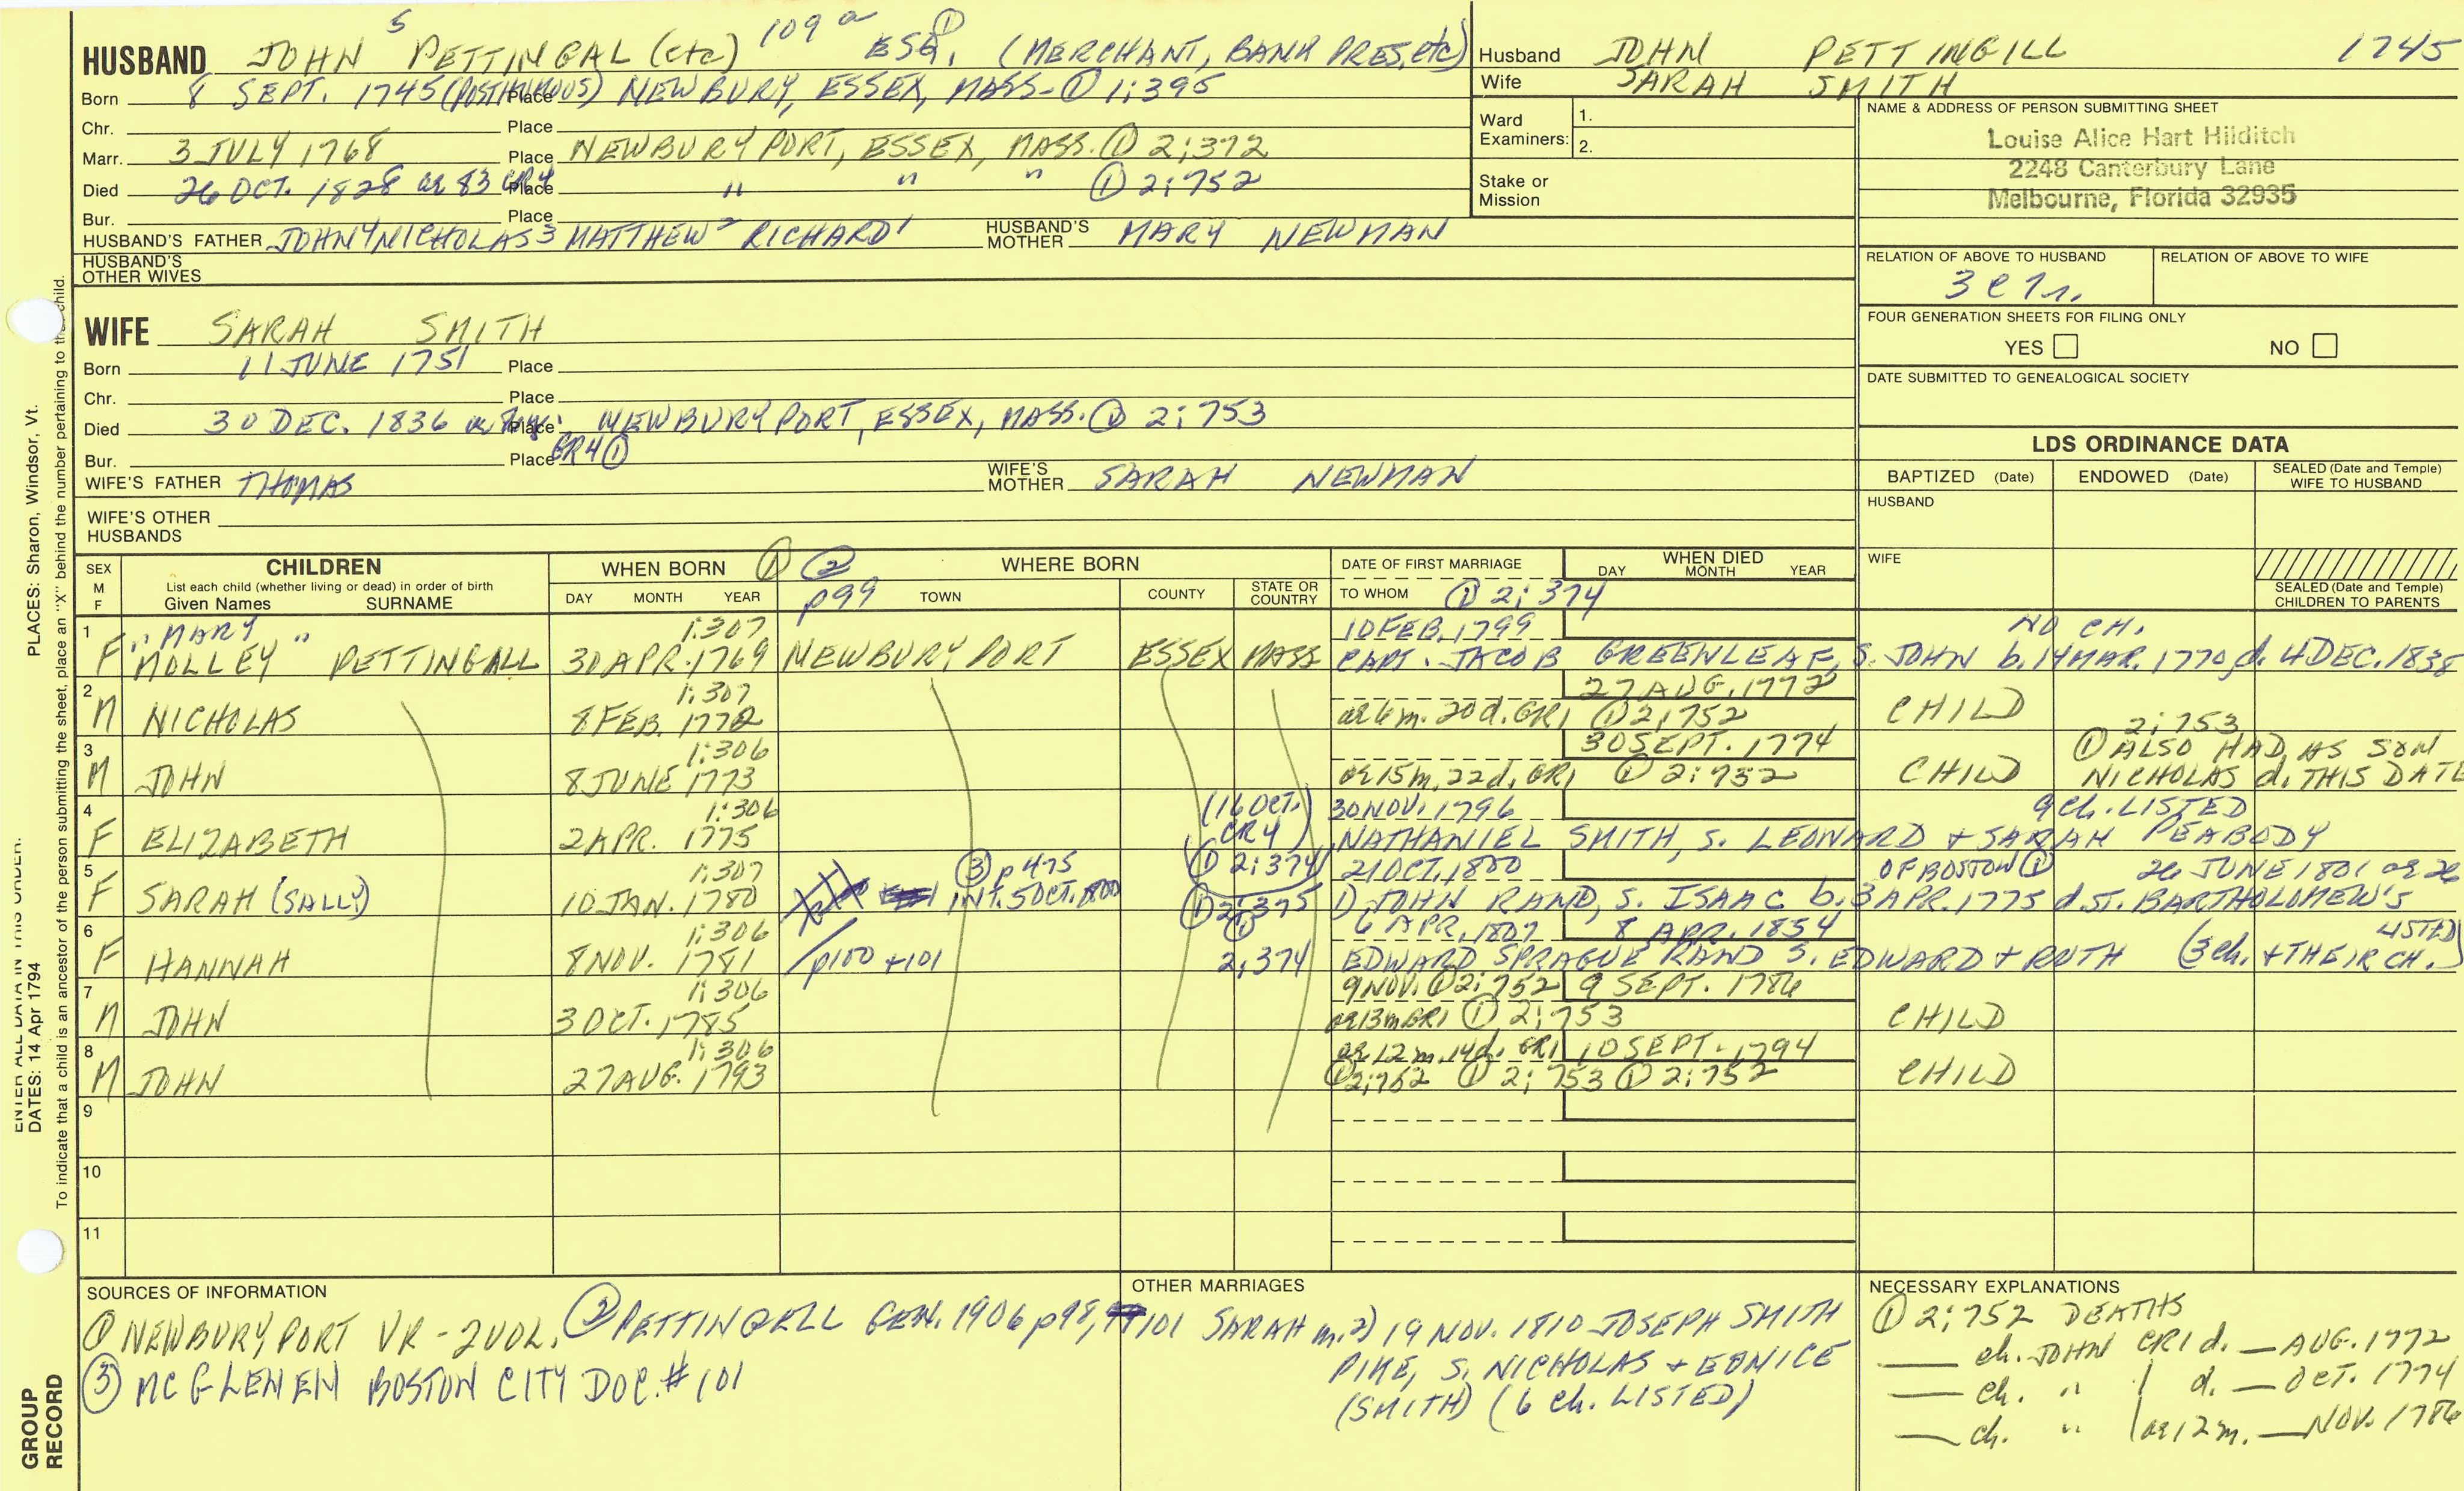 HUSBAND JOHN 5 PETTINGAL (etc) 109 a ① ESQ. (MERCHANT, BANK PRES, etc)
Born 8 SEPT. 1745 (POSTHUMOUS) Place NEWBURY, ESSEX, MASS- ① 1:395
Chr. Place
Marr. 3 JULY 1768 Place NEWBURYPORT, ESSEX, MASS. ① 2:372
Died 26 OCT. 1828 ae 83 GR4 Place " " " ① 2:752
Bur. Place
HUSBAND'S FATHER JOHN 4 NICHOLAS 3 MATTHEW 2 RICHARD 1 HUSBAND'S MOTHER MARY NEWMAN
HUSBAND'S OTHER WIVES
Husband JOHN PETTINGILL 1745
Wife SARAH SMITH
Ward Examiners: 1.
2.
Stake or Mission
NAME & ADDRESS OF PERSON SUBMITTING SHEET
Louise Alice Hart Hilditch
2248 Canterbury Lane
Melbourne, Florida 32935
RELATION OF ABOVE TO HUSBAND RELATION OF ABOVE TO WIFE
FOUR GENERATION SHEETS FOR FILING ONLY
YES NO
DATE SUBMITTED TO GENEALOGICAL SOCIETY
WIFE SARAH SMITH
Born 11 JUNE 1751 Place
Chr. Place
Died 30 DEC. 1836 Place NEWBURYPORT, ESSEX, MASS. ① 2:753
Bur. Place GR4 ①
WIFE'S FATHER THOMAS WIFE'S MOTHER SARAH NEWMAN
WIFE'S OTHER HUSBANDS
LDS ORDINANCE DATA
BAPTIZED (Date) ENDOWED (Date) SEALED (Date and Temple) WIFE TO HUSBAND
HUSBAND
WIFE
SEALED (Date and Temple) CHILDREN TO PARENTS
SEX M F CHILDREN List each child (whether living or dead) in order of birth Given Names SURNAME
WHEN BORN ① DAY MONTH YEAR
② p99 WHERE BORN TOWN COUNTY STATE OR COUNTRY
DATE OF FIRST MARRIAGE TO WHOM ① 2:374
WHEN DIED DAY MONTH YEAR
1 " MARY " 1:307 10 FEB. 1799 NO CH.
F MOLLEY PETTINGALL 30 APR. 1769 NEWBURYPORT ESSEX MASS CAPT. JACOB GREENLEAF, S. JOHN b. 14 MAR. 1770, d. 4 DEC. 1838
2 1:307 27 AUG. 1772
M NICHOLAS 8 FEB. 1772 ae 6m. 20d. GR1 ① 2:752 CHILD 2:753
3 1:306 30 SEPT. 1774 ① ALSO HAD AS SON
M JOHN 8 JUNE 1773 ae 15m. 22d. GR1 ① 2:752 CHILD NICHOLAS d. THIS DATE
4 1:306 (16 OCT. CR4) 30 NOV. 1796 9 ch. LISTED
F ELIZABETH 2 APR. 1775 NATHANIEL SMITH, S. LEONARD + SARAH PEABODY
5 1:307 ③ p475 ① 2:374 21 OCT. 1800 OF BOSTON ① 26 JUNE 1801 ae 26
F SARAH (SALLY) 10 JAN. 1780 INT. 5 OCT. 1800 ① 2:375 1) JOHN RAND, S. ISAAC b. 3 APR. 1775 d. ST. BARTHOLOMEW'S
6 1:306 ① 6 APR. 1807 8 APR. 1854 LISTED
F HANNAH 8 NOV. 1781 p100 + 101 2:374 EDWARD SPRAGUE RAND S. EDWARD + RUTH (3 ch. + THEIR CH.)
7 1:306 9 NOV. ① 2:752 9 SEPT. 1786
M JOHN 3 OCT. 1785 ae 13m GR1 ① 2:753 CHILD
8 1:306 ae 12 m. 14d. GR1 10 SEPT. 1794
M JOHN 27 AUG. 1793 ① 2:752 ① 2:753 ① 2:752 CHILD
9
10
11
SOURCES OF INFORMATION
① NEWBURYPORT VR - 2 VOL. ② PETTINGELL GEN. 1906 p98, 101
③ MC GLENEN BOSTON CITY DOC. # 101
OTHER MARRIAGES
SARAH m. 2) 19 NOV. 1810 JOSEPH SMITH
PIKE, S. NICHOLAS + EUNICE
(SMITH) (6 ch. LISTED)
NECESSARY EXPLANATIONS
① 2:752 DEATHS
— ch. JOHN CR1 d. — AUG. 1772
— ch. " 1 d. — OCT. 1774
— ch. " 1 ae 12 m. — NOV. 1786
ENTER ALL DATA IN THIS ORDER:
DATES: 14 Apr 1794 PLACES: Sharon, Windsor, Vt.
To indicate that a child is an ancestor of the person submitting the sheet, place an "X" behind the number pertaining to that child.
GROUP RECORD